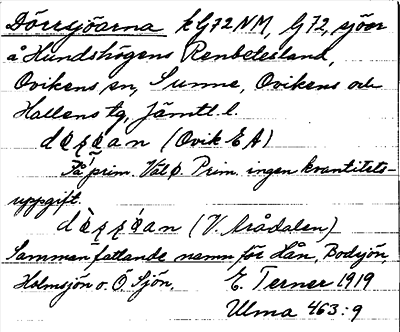 Dörrsjöarna kG72NM, G72, sjöar
å Hundshögens Renbetesland,
Ovikens sn, Sunne, Ovikens och
Hallens tg, Jämtl. l.
(Ovik E A)
På prim. Val ɸ. Prim. ingen kvantitets-
uppgift.
(V. Arådalen)
Sammanfattande namn för Lån, Bodsjön,
Holmsjön o. Ö Sjön.
E. Terner 1919
Ulma 463:9